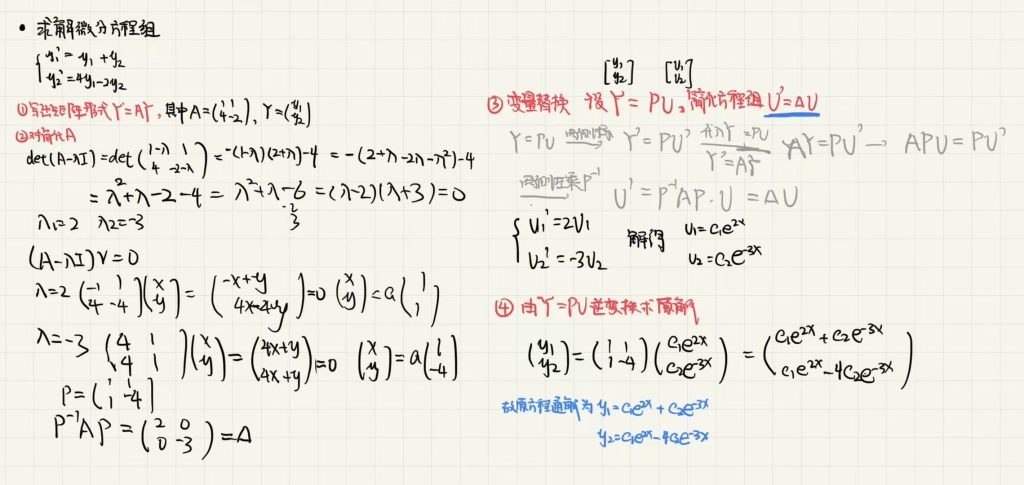 • 求解微分方程组
{ y₁' = y₁ + y₂
y₂' = 4y₁ - 2y₂
①写出矩阵形式 Y' = AY, 其中 A = (1 1 / 4 -2), Y = (y₁ / y₂)
②对角化A
det(A-λI) = det (1-λ 1 / 4 -2-λ) = -(1-λ)(2+λ)-4 = -(2+λ-2λ-λ²)-4
= λ²+λ-2-4 = λ²+λ-6 = (λ-2)(λ+3) = 0
-2
3
λ₁=2 λ₂=-3
(A-λI)v = 0
λ=2 (-1 1 / 4 -4)(x / y) = (-x+y / 4x-4y) = 0 (x / y) = a(1 / 1)
λ=-3 (4 1 / 4 1)(x / y) = (4x+y / 4x+y) = 0 (x / y) = a(1 / -4)
P = (1 1 / 1 -4)
P⁻¹AP = (2 0 / 0 -3) = Λ
[y₁ / y₂] [u₁ / u₂]
③变量替换 设 Y = PU, 简化方程组 U' = ΛU
Y = PU 两侧求导 Y' = PU' 代入Y=PU / Y'=AY AY = PU' → APU = PU'
两侧左乘P⁻¹ U' = P⁻¹AP·U = ΛU
{ U₁' = 2U₁
U₂' = -3U₂
解得 u₁ = c₁e²ˣ
u₂ = c₂e⁻³ˣ
④ 由Y = PU 逆变换求原解
(y₁ / y₂) = (1 1 / 1 -4)(c₁e²ˣ / c₂e⁻³ˣ) = (c₁e²ˣ + c₂e⁻³ˣ / c₁e²ˣ - 4c₂e⁻³ˣ)
故原方程通解为 y₁ = c₁e²ˣ + c₂e⁻³ˣ
y₂ = c₁e²ˣ - 4c₂e⁻³ˣ